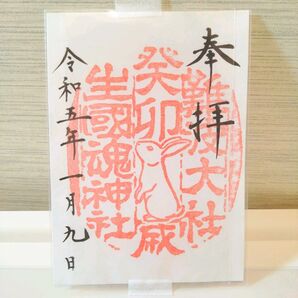 奉拝
難波大社
癸卯歳
生國魂神社
令和五年一月九日